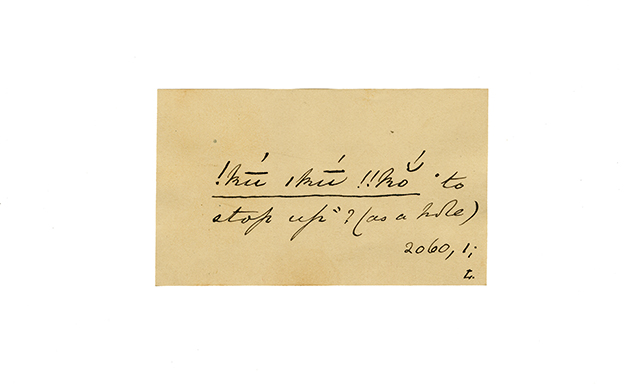 !kū́ ıkū́ !!kŏ́ "to
stop up"? (as a hole)
2060, 1;
L.